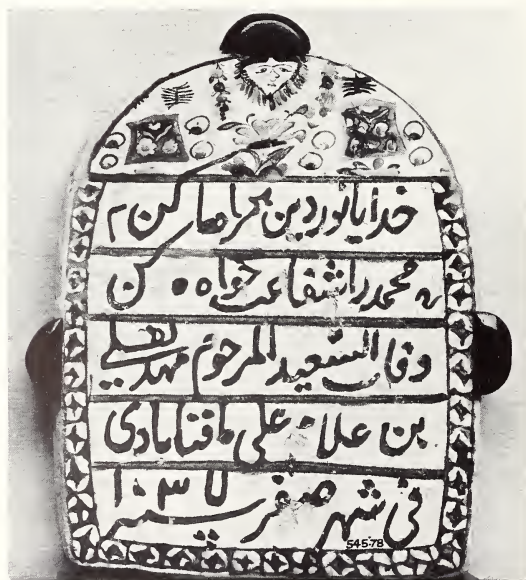 خدایا نور دین همراه ما کن
محمد را شفاعت خواه کن
وفات السعید المرحوم مهدیقلی
بن علاء علی بافتابادی
فی شهر صفر سنه ۱۰۳۷
545-78